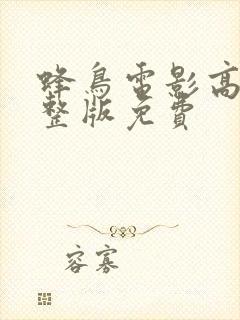 蜂鳥電影高
整版免費
容寡